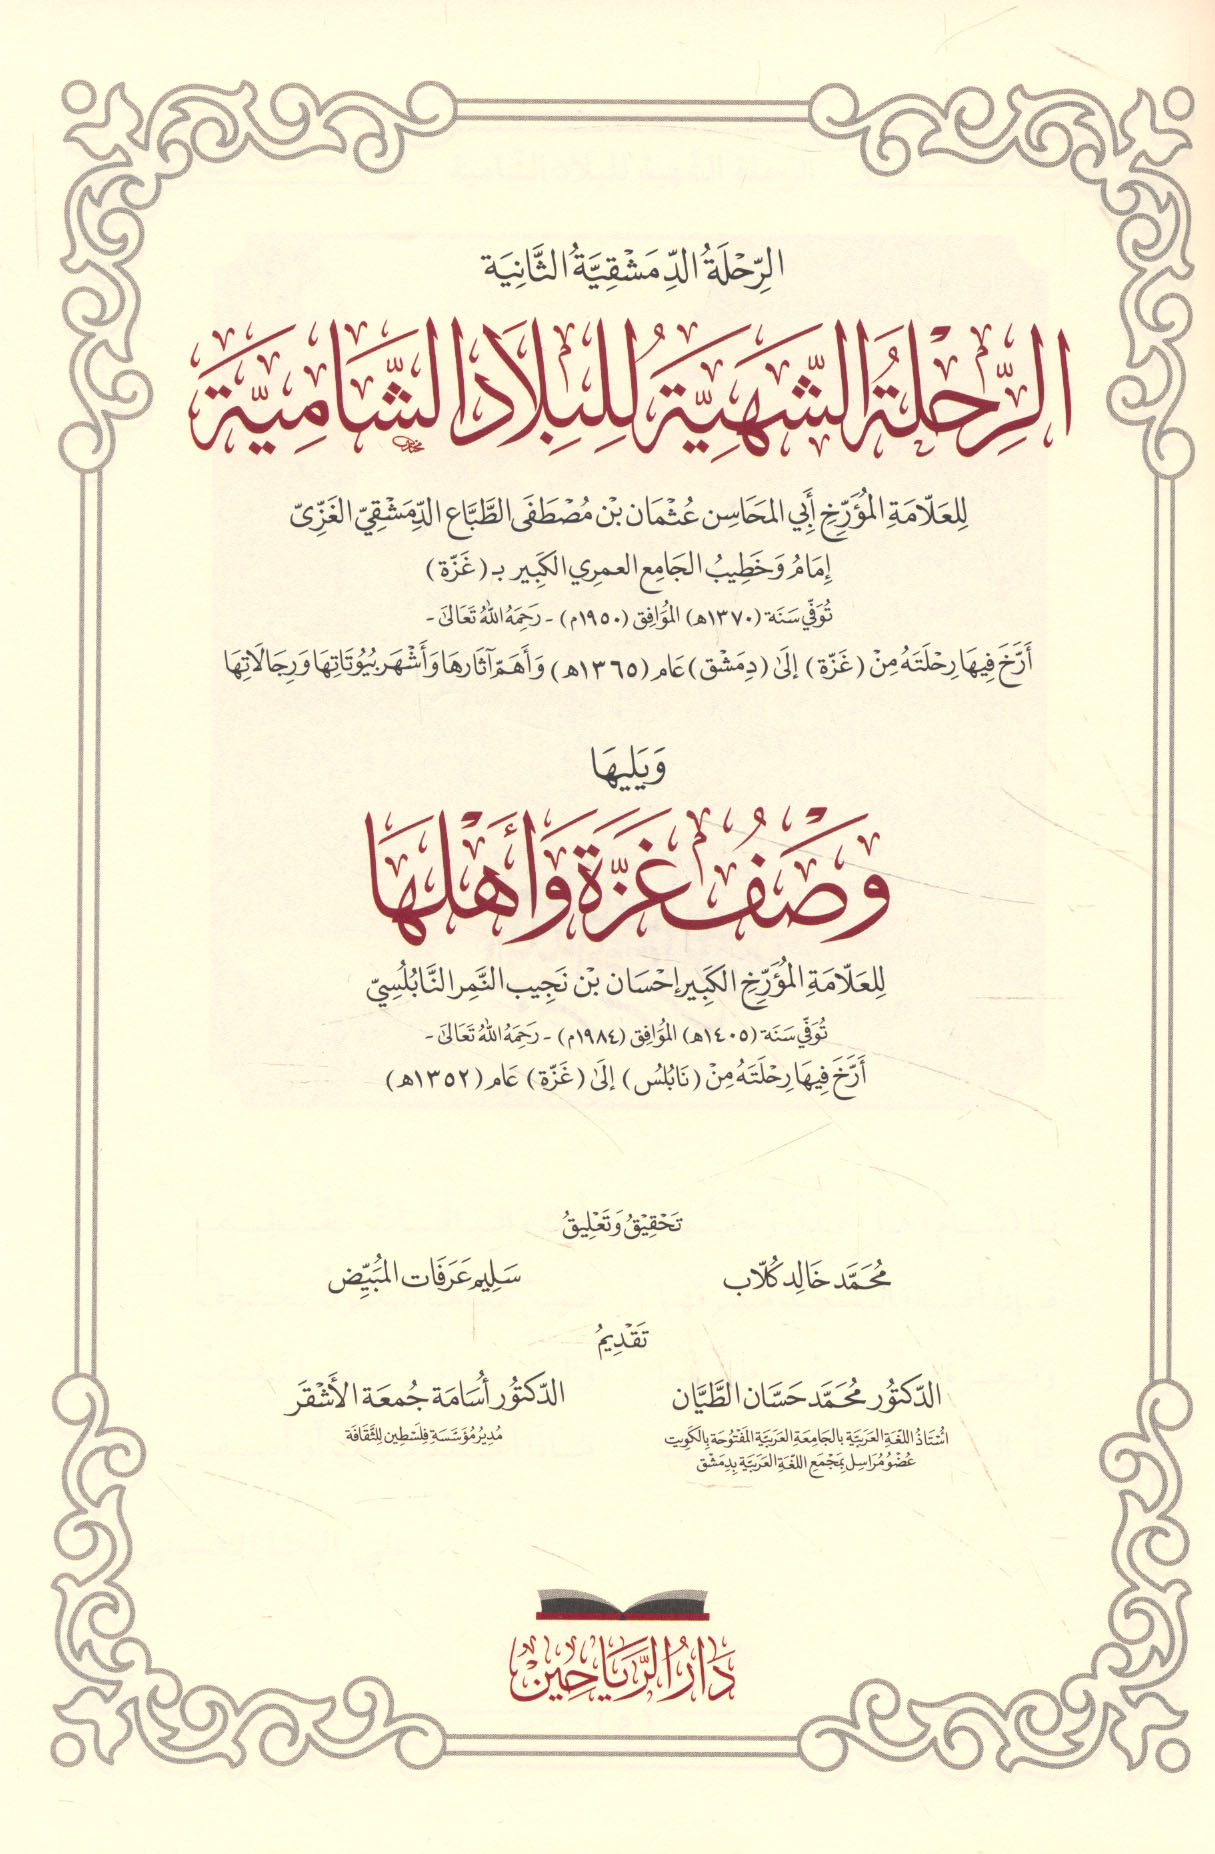 الرِّحْلَةُ الدِّمَشْقِيَّةُ الثَّانِيَة
الرِّحْلَةُ الشَّهِيَّة لِلْبِلَادِ الشَّامِيَّة
لِلعَلّامَةِ المُؤَرِّخِ أَبِي المَحَاسِن عُثْمَان بْن مُصْطَفَى الطَّبَّاع الدِّمَشْقِيّ الغَزِّيّ
إِمَامُ وَخَطِيبُ الجَامِع العمري الكَبِير بـ (غَزّة)
تُوَفِّي سَنَة (١٣٧٠هـ) المُوَافِق (١٩٥٠م) - رَحِمَهُ اللهُ تَعَالَى -
أَرَّخَ فِيهَا رِحْلَتَهُ مِنْ (غَزّة) إِلَى (دِمَشْق) عَام (١٣٦٥هـ) وَأَهَمّ آثَارِهَا وَأَشْهَر بُيُوتَاتِهَا وَرِجَالَاتِهَا
وَيَلِيهَا
وَصْفُ غَزَّة وَأَهْلِهَا
لِلعَلّامَةِ المُؤَرِّخِ الكَبِير إِحْسَان بْن نَجِيب النَّمِر النَّابُلُسِيّ
تُوَفِّي سَنَة (١٤٠٥هـ) المُوَافِق (١٩٨٤م) - رَحِمَهُ اللهُ تَعَالَى -
أَرَّخَ فِيهَا رِحْلَتَهُ مِنْ (نَابُلُس) إِلَى (غَزّة) عَام (١٣٥٢هـ)
تَحْقِيْقُ وَتَعْلِيقُ
مُحَمَّد خَالِد كُلّاب
سَلِيم عَرَفَات المُبَيِّض
تَقْدِيمُ
الدّكتُور مُحَمَّد حَسَّان الطَّيَّان
الدّكتُور أُسَامَة جُمعَة الأَشْقَر
اسْتَاذُ اللغَةِ العَرَبيَّةِ بِالجَامِعَةِ العَرَبيَّةِ المَفْتُوحَةِ بِالكُوَيت
عُضْوُ مُرَاسِل بِمَجْمَعِ اللُّغَةِ العَرَبيَّةِ بِدِمَشْق
مُدِيرُ مُؤَسَّسَةِ فِلَسْطِين لِلثَّقَافَة
دَارُ الرَّيَاحِيْن